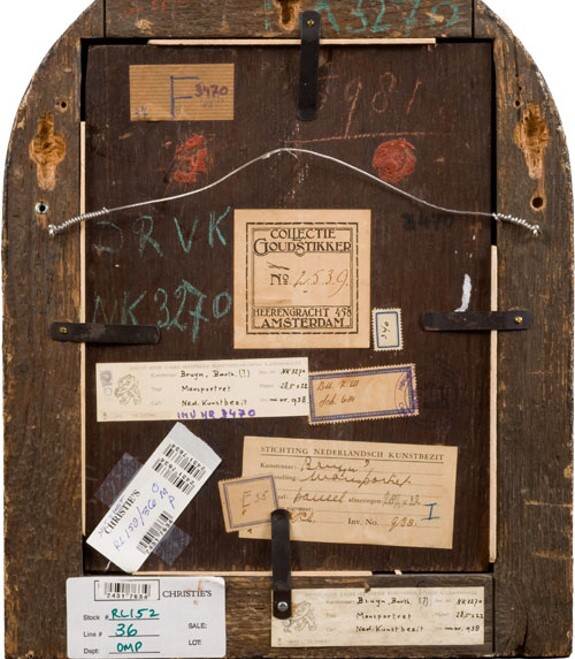 NK3270
F 3470
1981
DRVK
NK3270
COLLECTIE
GOUDSTIKKER
No. 2539.
HEERENGRACHT 458
AMSTERDAM
Kunstenaar: Bruyn, Barth. (?) NK 3270
Mansportret 28,5 x 22
Ned. Kunstbezit inv. nr. 938
INV NR 3470
STICHTING NEDERLANDSCH KUNSTBEZIT
Kunstenaar: Bruyn?
Mansportret
paneel afmetingen
I
Inv. No. 938.
F 35
CHRISTIE'S
RL152/36 OMP
CHRISTIE'S
Stock # RL152
Line # 36
Dept: OMP
SALE:
LOT:
Bruyn, Barth. (?) NK 3270
Mansportret 28,5 x 22
Ned. Kunstbezit inv. nr. 938